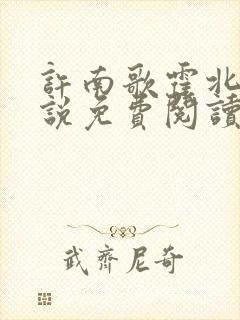 許南歌霍北
說免費閱讀
武齊尼奇